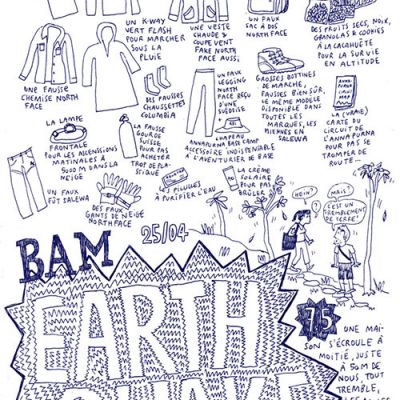 UN K-WAY
VERT FLASH
POUR MARCHER
SOUS LA
PLUIE
UNE VESTE
CHAUDE &
COUPE VENT
FAKE NORTH
FACE AUSSI,
UN FAUX
SAC À DOS
NORTH FACE
DES FRUITS SECS, NOIX,
GRANOLAS & COOKIES
À LA CACAHUÈTE
POUR LA SURVIE
EN ALTITUDE
UNE FAUSSE
CHEMISE NORTH
FACE
DES FAUSSES
CHAUSSETTES
COLUMBIA
UN FAUX
LEGGING
NORTH
FACE
REÇU
D'UNE
SUÉDOISE
GROSSES BOTTINES
DE MARCHE,
FAUSSES BIEN SÛR,
LE MÊME MODÈLE
DISPONIBLE DANS
TOUTES LES
MARQUES, LES
MIENNES EN
SALEWA
LA (VRAIE)
CARTE DU
CIRCUIT DE
L'ANNAPURNA
POUR PAS SE
TROMPER DE
ROUTE...
LA LAMPE
FRONTALE
POUR LES ASCENSIONS
MATINALES À
5000 M DANS LA
NEIGE
LA FAUSSE
GOURDE
SUISSE
POUR PAS
ACHETER
TROP DE PLA-
STIQUE
CHAPEAU
ANNAPURNA BASE CAMP
ACCESSOIRE INDISPENSABLE
À L'AVENTURIER DE BASE
UN FAUX
FÛT SALEWA
DES FAUX
GANTS DE NEIGE
NORTHFACE
& PILULES
À PURIFIER L'EAU
LA CRÈME
SOLAIRE
POUR PAS
BRÛLER
HEIN?
MAIS!
C'EST UN
TREMBLEMENT
DE TERRE!
25/04
BAM
EARTH
QUAKE
7.5
UNE MAI-
SON S'ÉCROULE À
MOITIÉ, JUSTE
À 50M DE
NOUS, TOUT
TREMBLE,